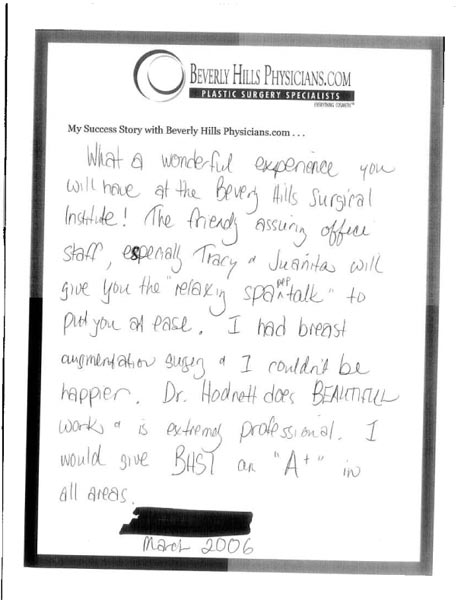 BEVERLY HILLS PHYSICIANS.COM
PLASTIC SURGERY SPECIALISTS
EVERYTHING COSMETIC™
My Success Story with Beverly Hills Physicians.com . . .
What a wonderful experience you
will have at the Beverly Hills Surgical
Institute! The friendly assuring office
staff, especially Tracy & Juanita will
give you the "relaxing spa pep talk" to
put you at ease. I had breast
augmentation surgery & I couldn't be
happier. Dr. Hodnett does BEAUTIFULL
work & is extremely professional. I
would give BHSI an "A+" in
all areas.
March 2006